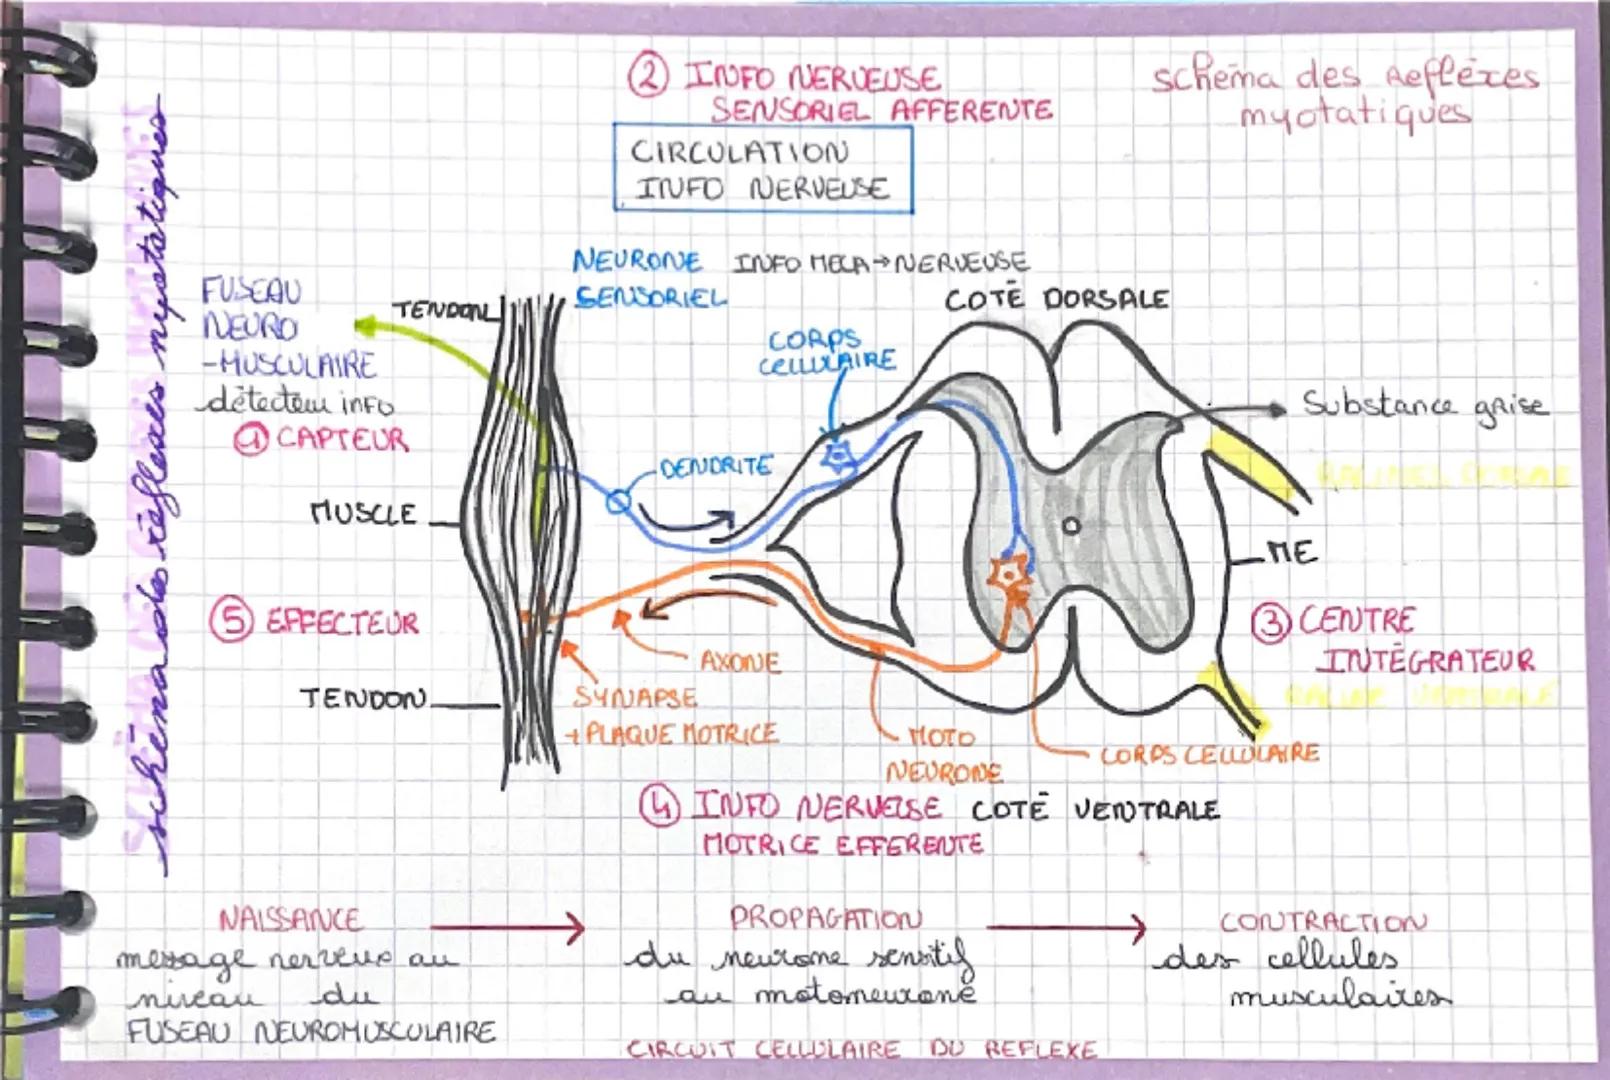 ② INFO NERVEUSE
SENSORIEL AFFERENTE
schéma des Refléxes
myotatiques
CIRCULATION
INFO NERVEUSE
schéma des réflexes myotatiques
NEURONE
SENSORIEL
INFO MECA→NERVEUSE
COTÉ DORSALE
FUSEAU
NEURO
-MUSCULAIRE
détecteur info
① CAPTEUR
TENDON
CORPS
CELLULAIRE
Substance grise
DENDRITE
RACINES DORSALE
MUSCLE
ME
⑤ EFFECTEUR
③ CENTRE
INTÉGRATEUR
AXONE
TENDON
SYNAPSE
+ PLAQUE MOTRICE
RACINE VENTRALE
MOTO
NEURONE
CORPS CELLULAIRE
④ INFO NERVEUSE
MOTRICE EFFERENTE
COTÉ VENTRALE
NAISSANCE
message nerveux au
niveau du
FUSEAU NEUROMUSCULAIRE
PROPAGATION
du neurone sensitif
au motoneurone
CONTRACTION
des cellules
musculaires
CIRCUIT CELLULAIRE DU REFLEXE